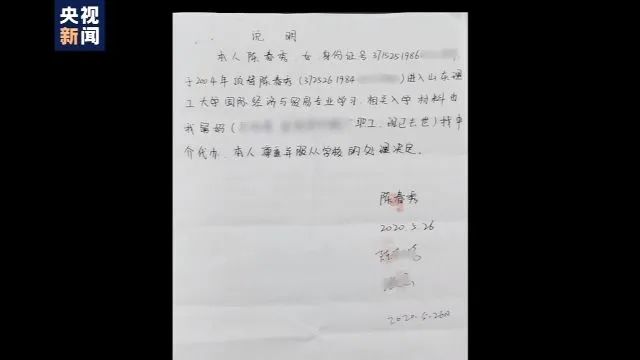 央视
新闻
说明
本人陈春秀,女,身份证号3715251986
于2004年顶替陈春秀(372526 1984)进入山东理
工大学国际经济与贸易专业学习,相关入学材料由
我舅妈(职工,现已去世)找中
介代办,本人尊重并服从学校的处理决定。
陈春秀
2020.5.26
2020.5.26日